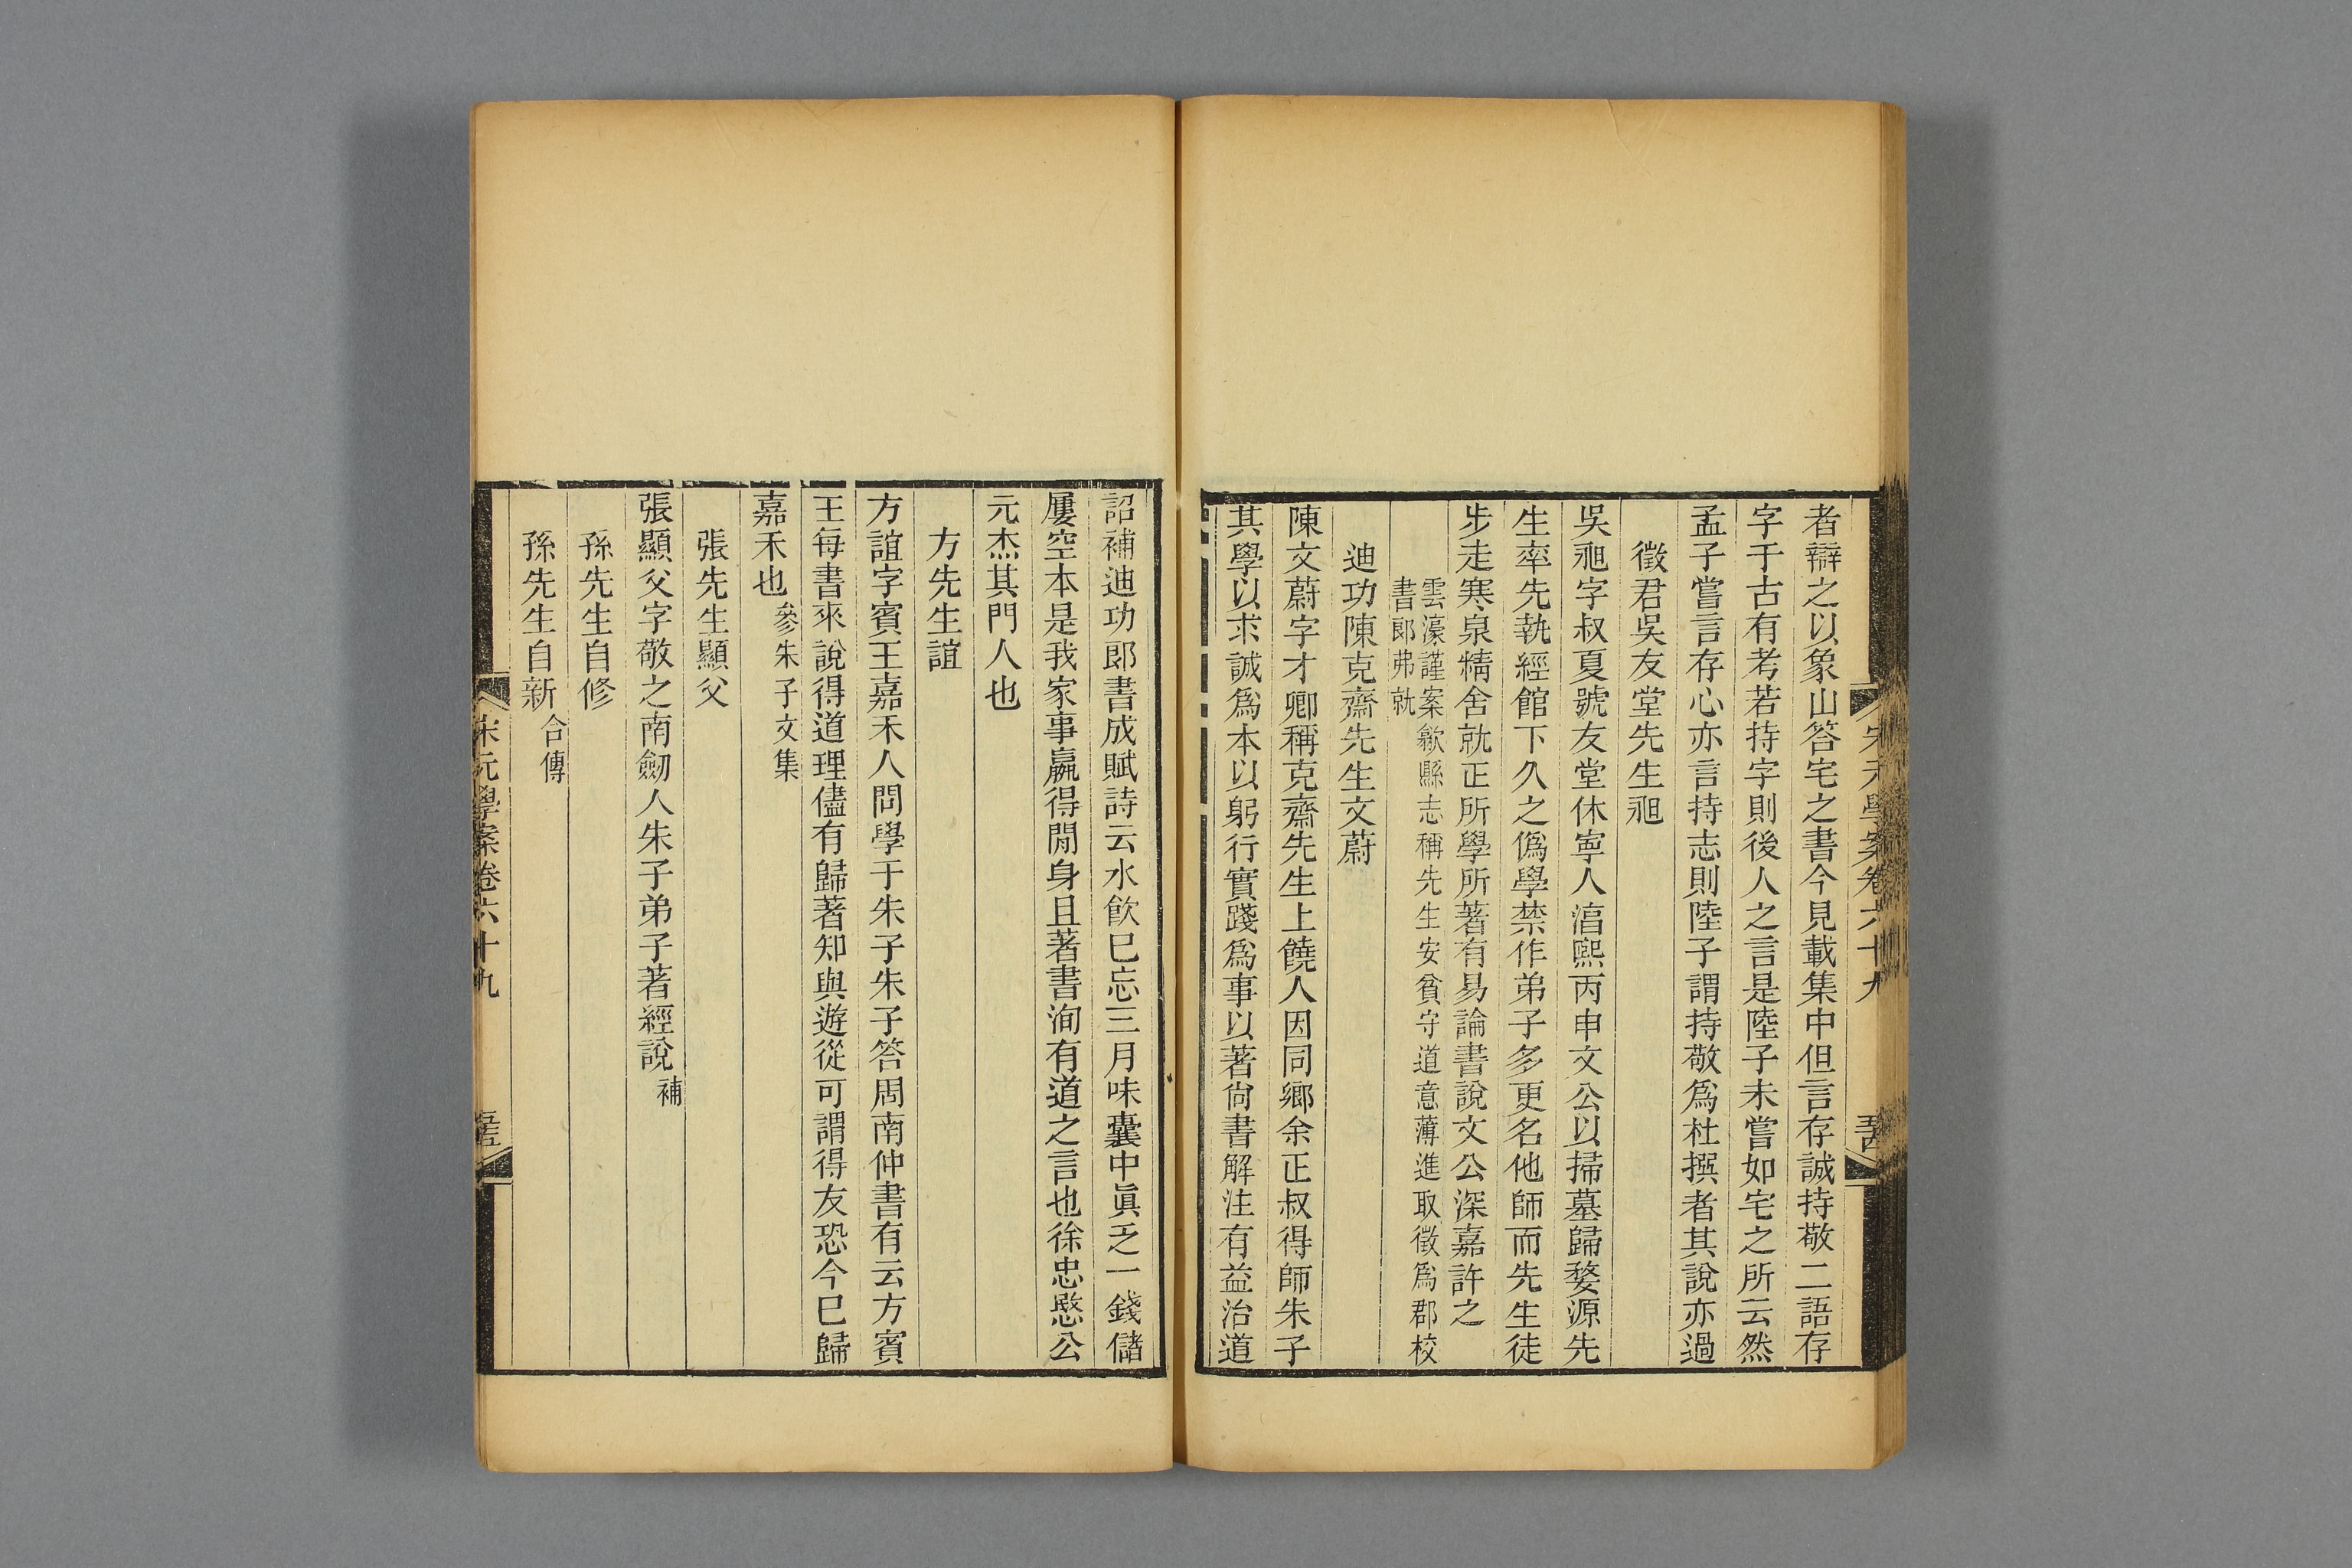 宋元學案卷六十九
者辯之以象山答宅之書今見載集中但言存誠持敬二語存
字于古有考若持字則後人之言是陸子未嘗如宅之所云然
孟子嘗言存心亦言持志則陸子謂持敬爲杜撰者其說亦過
徵君吳友堂先生昶
吳昶字叔夏號友堂休寧人湻熙丙申文公以掃墓歸婺源先
生率先執經館下久之僞學禁作弟子多更名他師而先生徒
步走寒泉精舍就正所學所著有易論書說文公深嘉許之
雲濠謹案歙縣志稱先生安貧守道意薄進取徵爲郡校
書郞弗就
迪功陳克齋先生文蔚
陳文蔚字才卿稱克齋先生上饒人因同鄉余正叔得師朱子
其學以求誠爲本以躬行實踐爲事以著尙書解注有益治道
詔補迪功郞書成賦詩云水飮已忘三月味囊中眞乏一錢儲
屢空本是我家事贏得閒身且著書洵有道之言也徐忠愍公
元杰其門人也
方先生誼
方誼字賓王嘉禾人問學于朱子朱子答周南仲書有云方賓
王每書來說得道理儘有歸著知與遊從可謂得友恐今已歸
嘉禾也參朱子文集
張先生顯父
張顯父字敬之南劒人朱子弟子著經說補
孫先生自修
孫先生自新合傳
宋元學案卷六十九